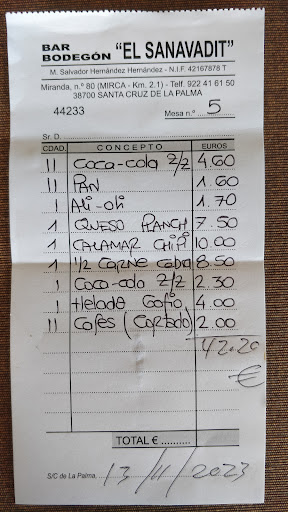 BAR
BODEGÓN "EL SANAVADIT"
M. Salvador Hernández Hernández - N.I.F. 42167878 T
Miranda, n.º 80 (MIRCA - Km. 2,1) - Telf. 922 41 61 50
38700 SANTA CRUZ DE LA PALMA
44233 Mesa n.º 5
Sr. D.
CDAD. CONCEPTO EUROS
11 Coca-cola 2/2 4.60
11 PAN 1.60
1 Ali-oli 1.70
1 QUESO PLANCH 7.50
1 CALAMAR CHIPI 10.00
1 1/2 CARNE Cabra 8.50
1 Coca-cola 2/2 2.30
1 Helado Gofio 4.00
11 Cafes (Cortado) 2.00
42.20
€
TOTAL € ..........
S/C de La Palma, 13/11/2023